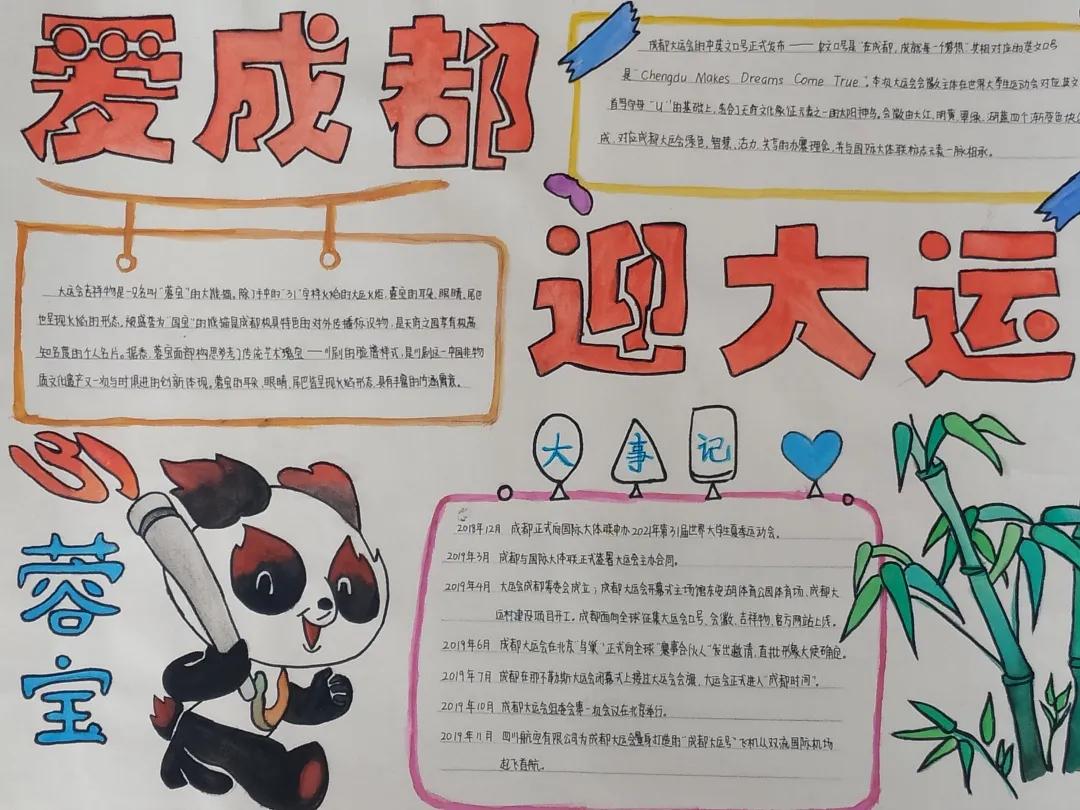 爱成都
成都大运会的中英文口号正式发布——中文口号是“在成都,成就每一个梦想”其相对应的英文口号
是“Chengdu Makes Dreams Come True”。本次大运会会徽主体在世界大学生运动会对应英文
首写字母“U”的基础上,结合了天府文化象征元素之一的太阳神鸟。会徽由大红、明黄、翠绿、湖蓝四个渐变色块组
成,对应成都大运会绿色、智慧、活力、共享的办赛理念,并与国际大体联标志元素一脉相承。
迎大运
大运会吉祥物是一只名叫“蓉宝”的大熊猫。除了手中的“31”字样火焰的大运火炬,蓉宝的耳朵、眼睛、尾巴
也呈现火焰的形态。被盛誉为“国宝”的熊猫是成都极具特色的对外传播标识物,是天府之国享有极高
知名度的个人名片。据悉,蓉宝面部构思参考了传统艺术瑰宝——川剧的脸谱样式,是川剧这一中国非物
质文化遗产又一次与时俱进的创新体现。蓉宝的耳朵、眼睛、尾巴皆呈现火焰形态,具有丰富的内涵寓意。
31
蓉宝
大事记
2018年12月 成都正式向国际大体联申办2021年第31届世界大学生夏季运动会。
2019年3月 成都与国际大体联正式签署大运会主办合同。
2019年4月 大运会成都筹委会成立;成都大运会开幕式主场馆东安湖体育公园体育场、成都大
运村建设项目开工。成都面向全球征集大运会口号、会徽、吉祥物,官方网站上线。
2019年6月 成都大运会在北京“鸟巢”正式向全球“赛事合伙人”发出邀请,首批形象大使确定。
2019年7月 成都在那不勒斯大运会闭幕式上接过大运会会旗,大运会正式进入“成都时间”。
2019年10月 成都大运会组委会第一次会议在北京举行。
2019年11月 四川航空有限公司为成都大运会量身打造的“成都大运号”飞机从双流国际机场
起飞首航。